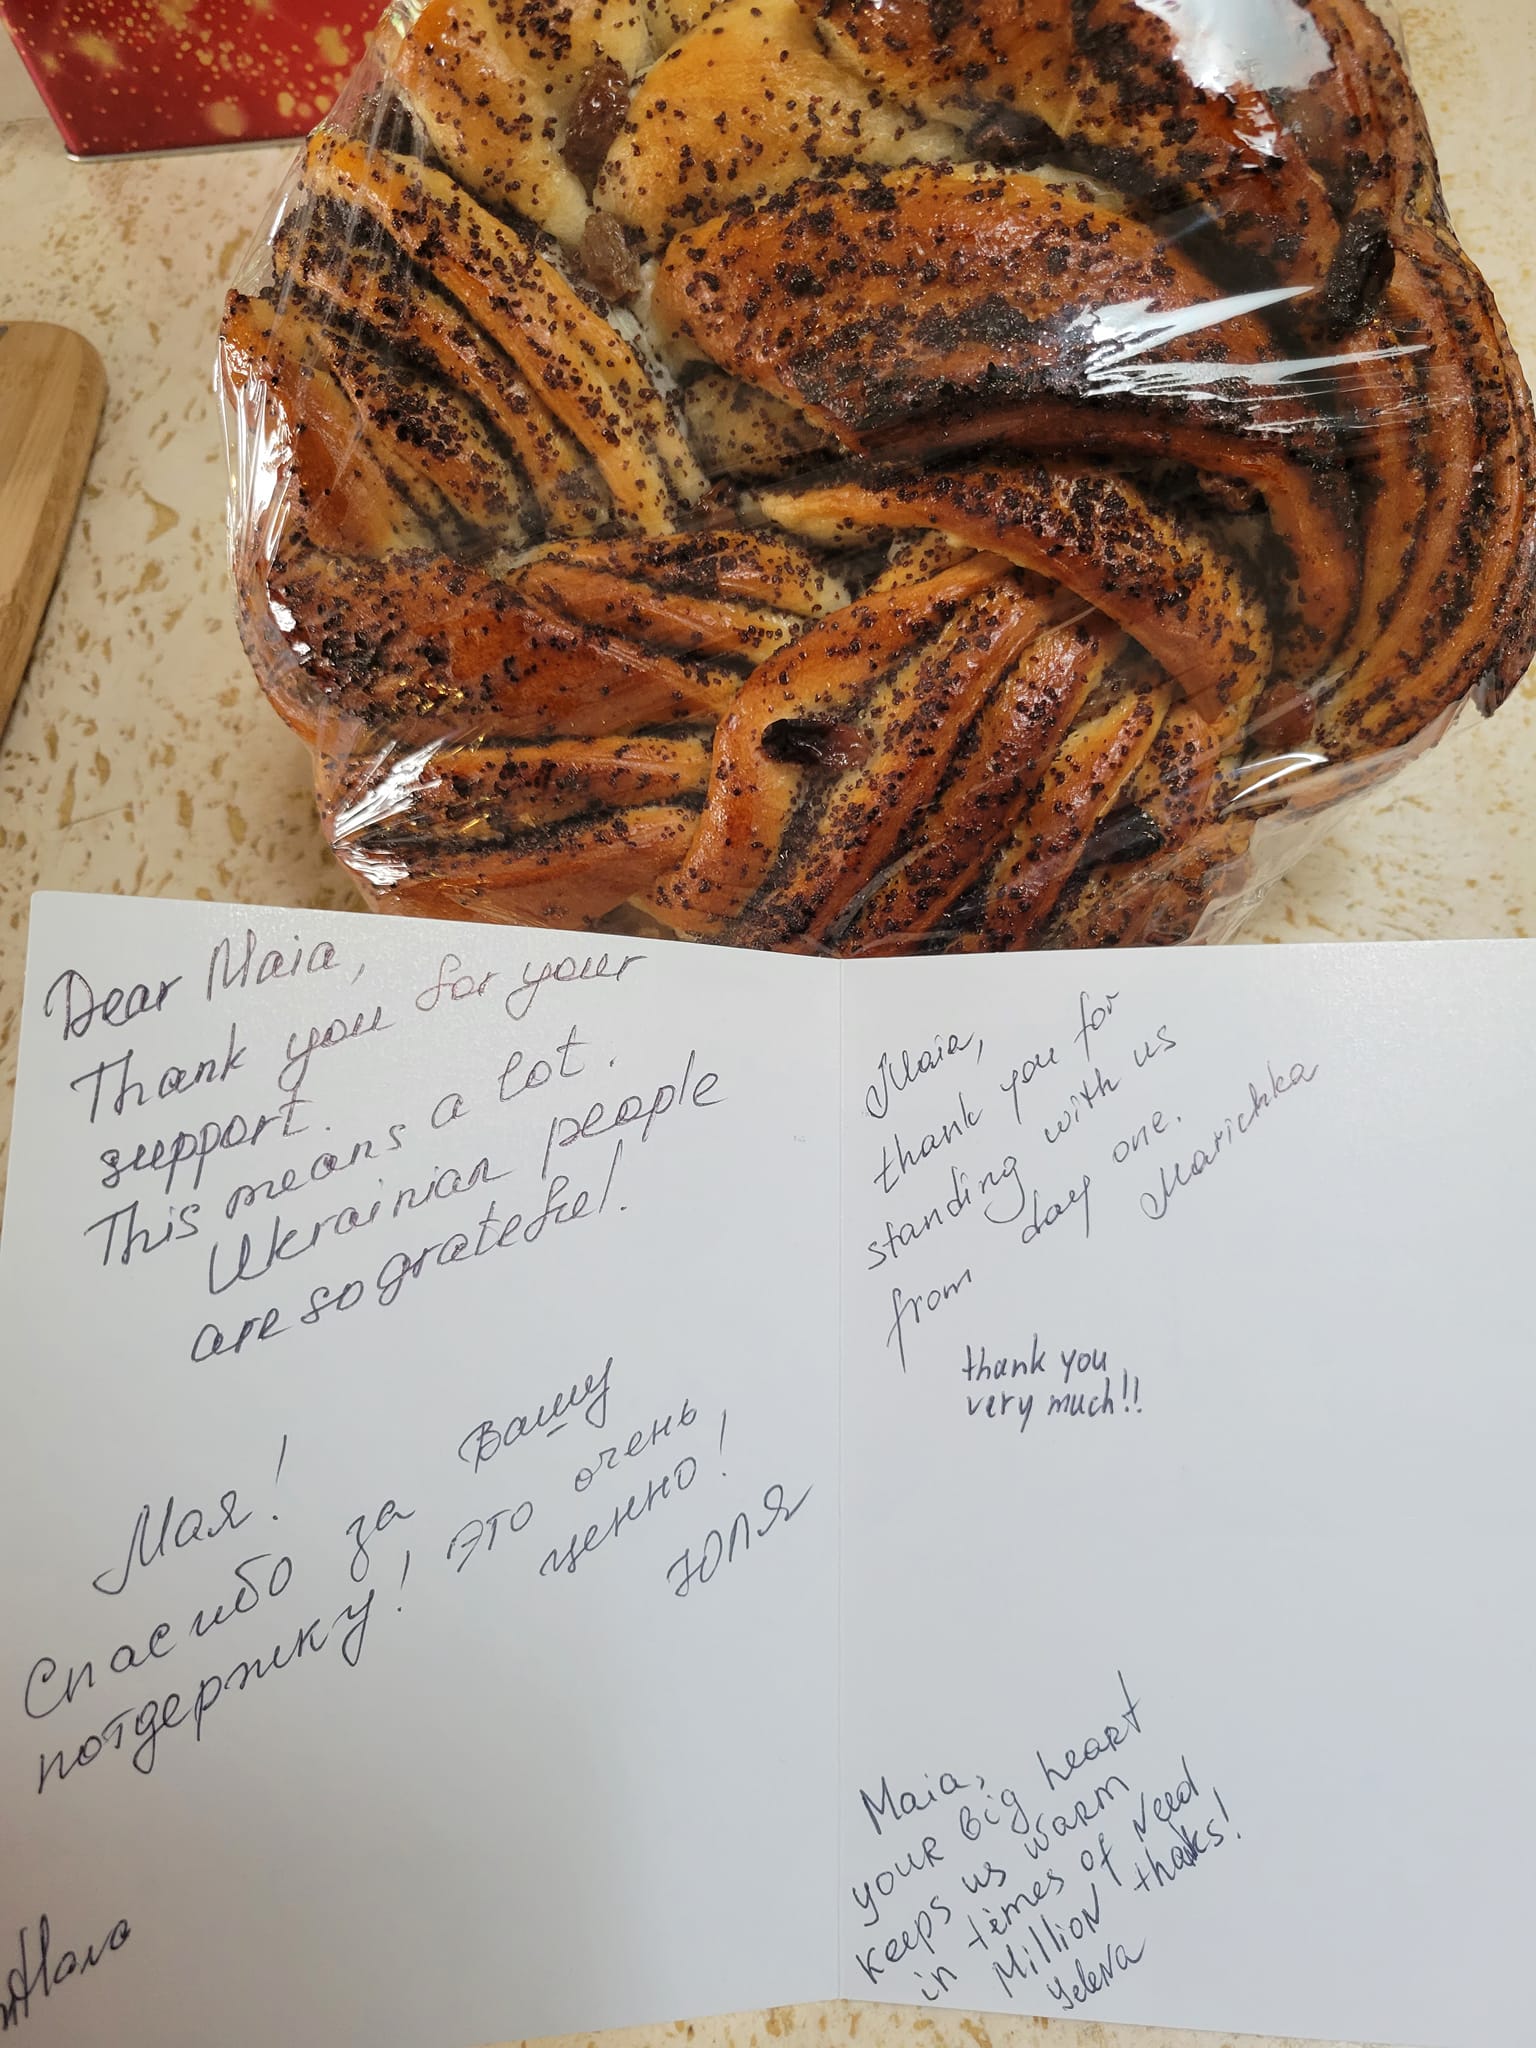 Dear Maia,
Thank you for your
support.
This means a lot.
Ukrainian people
are so grateful.
Мая!
Спасибо за вашу
потдержку! это очень
ценно!
Юля
Maia,
thank you for
standing with us
from day one.
Marichka
thank you
very much!!
Maia,
your big heart
keeps us warm
in times of need
Million thanks!
Yelena